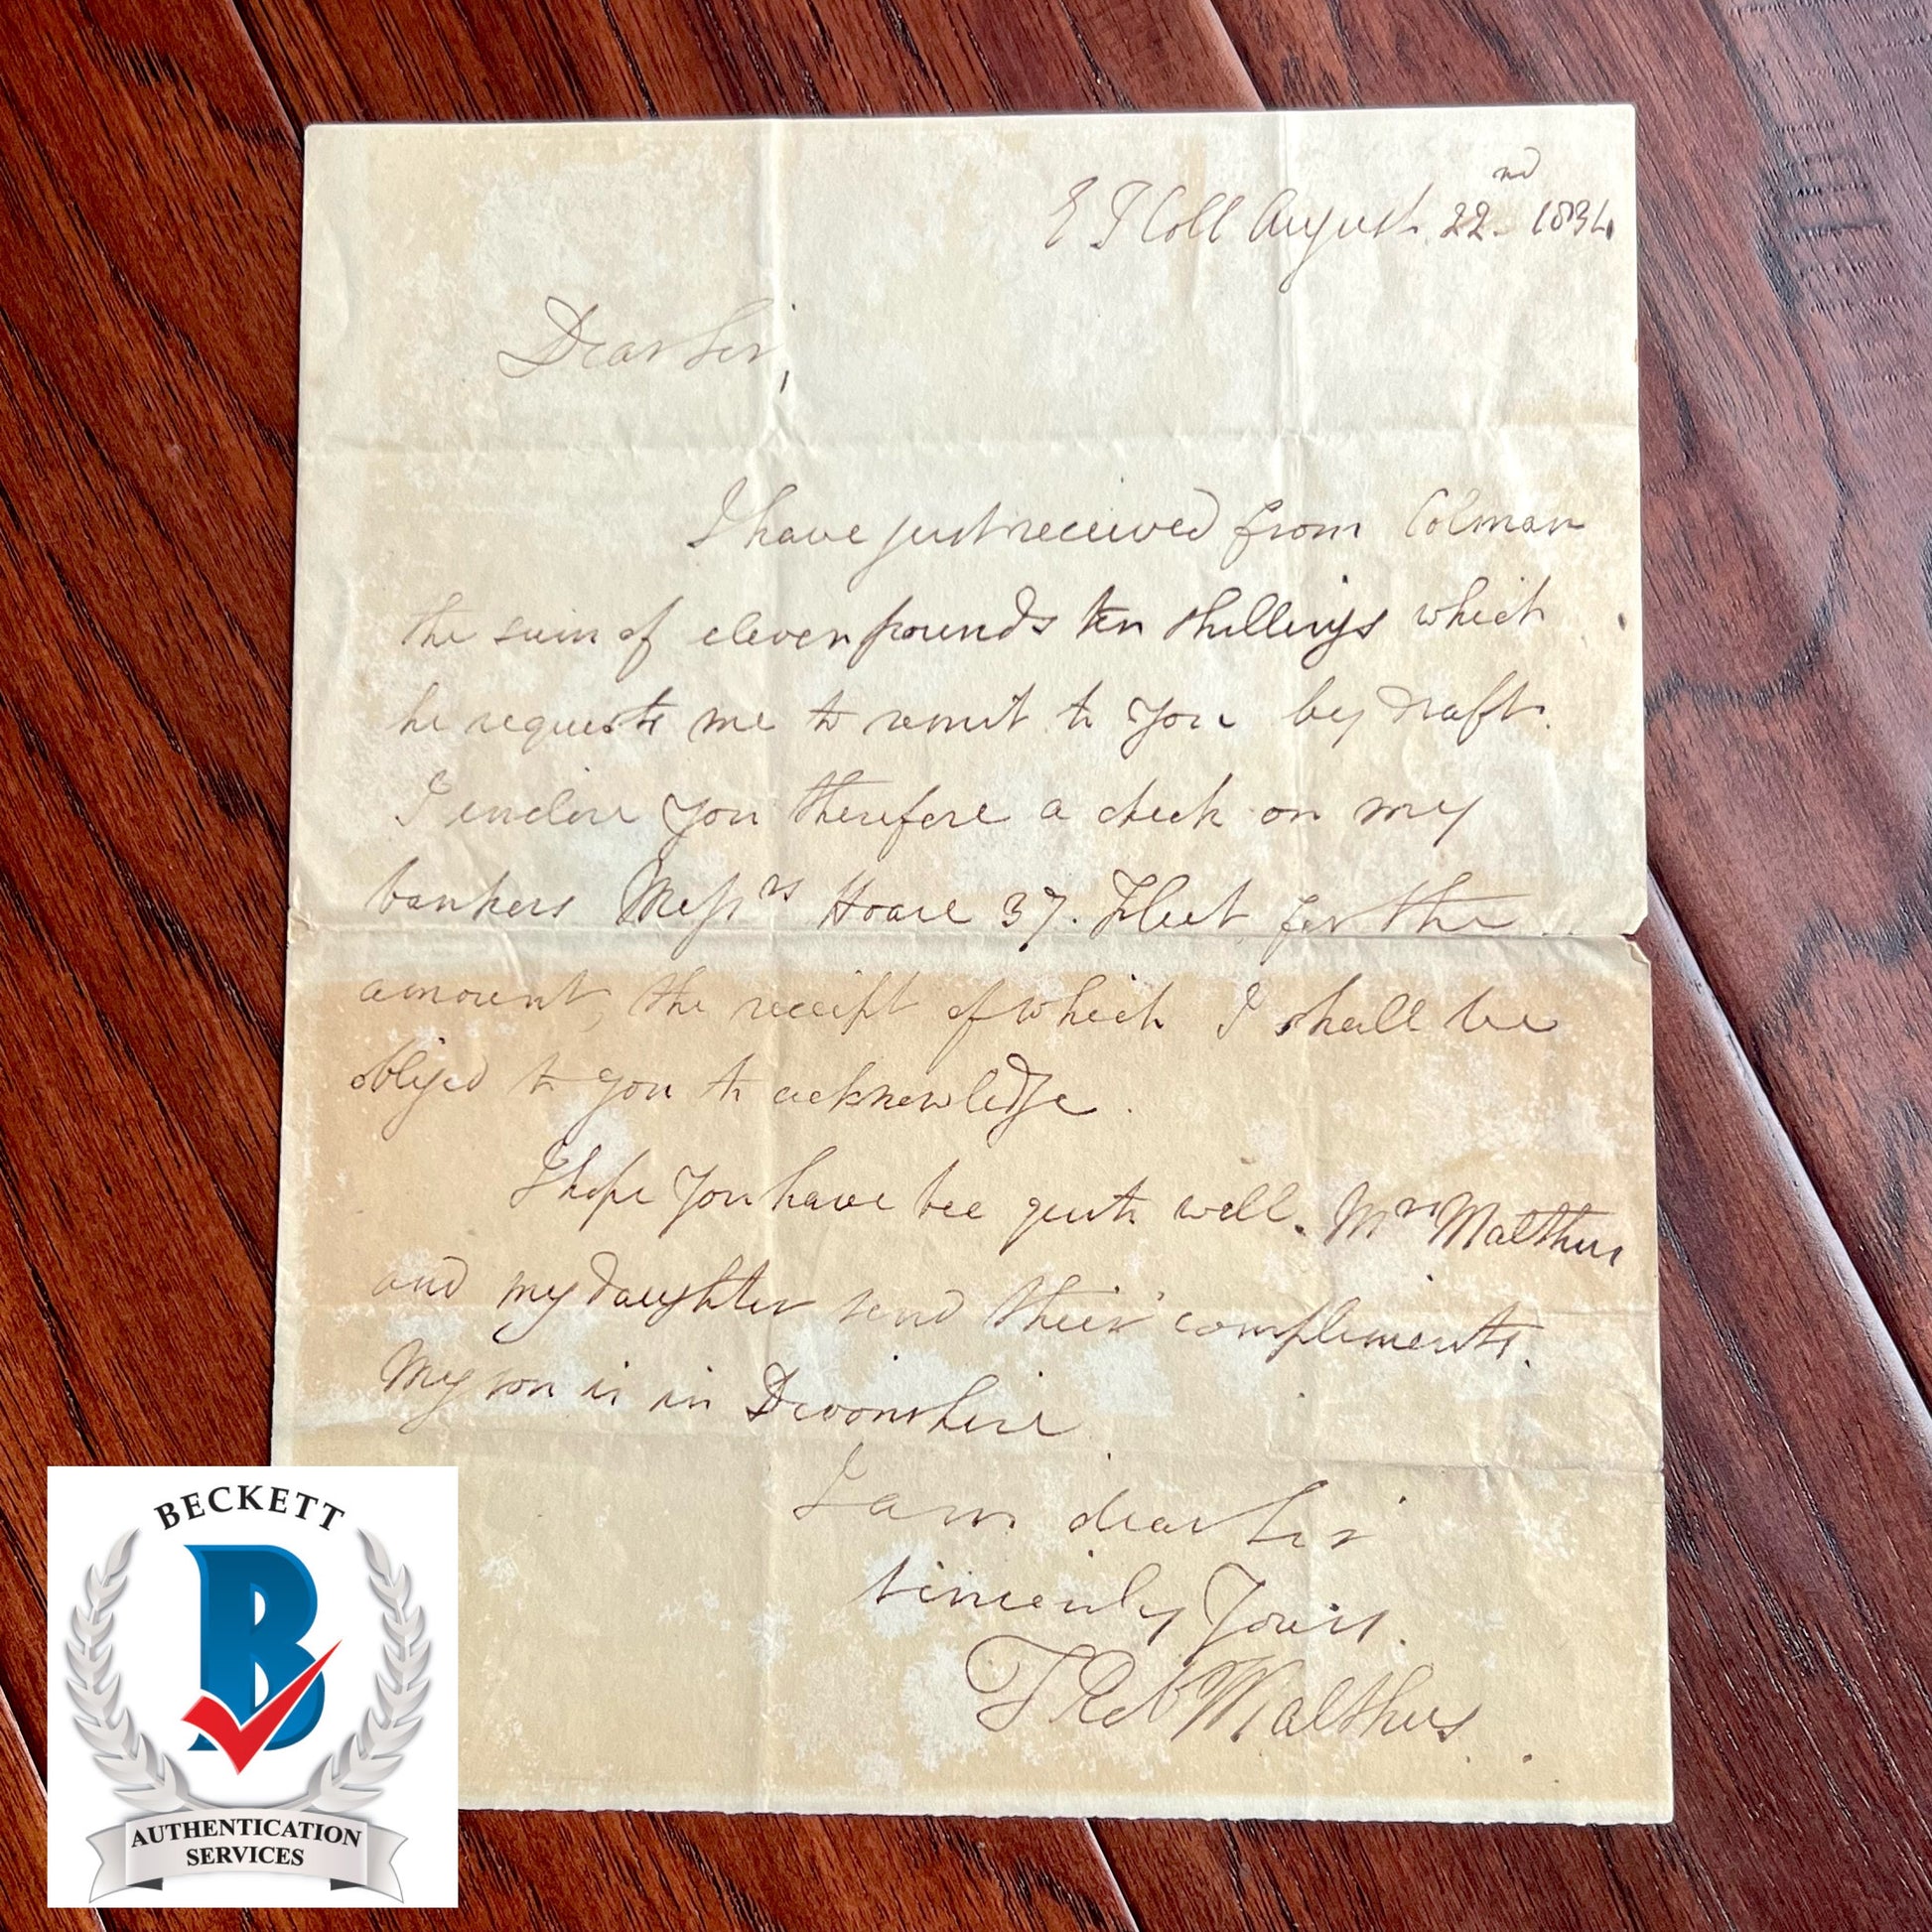 E I Coll August 22nd 1834
Dear Sir,
I have just received from Colman
the sum of eleven pounds ten shillings which
he requests me to remit to you by draft.
I inclose you therefore a check on my
bankers Messrs Hoare 37. Fleet for the
amount, the receipt of which I shall be
obliged to you to acknowledge.
I hope you have bee quite well. Mrs Malthus
and my daughter send their compliments.
My son is in Devonshire.
I am dear Sir
sincerely Yours.
T Rob Malthus.
BECKETT
B
AUTHENTICATION
SERVICES